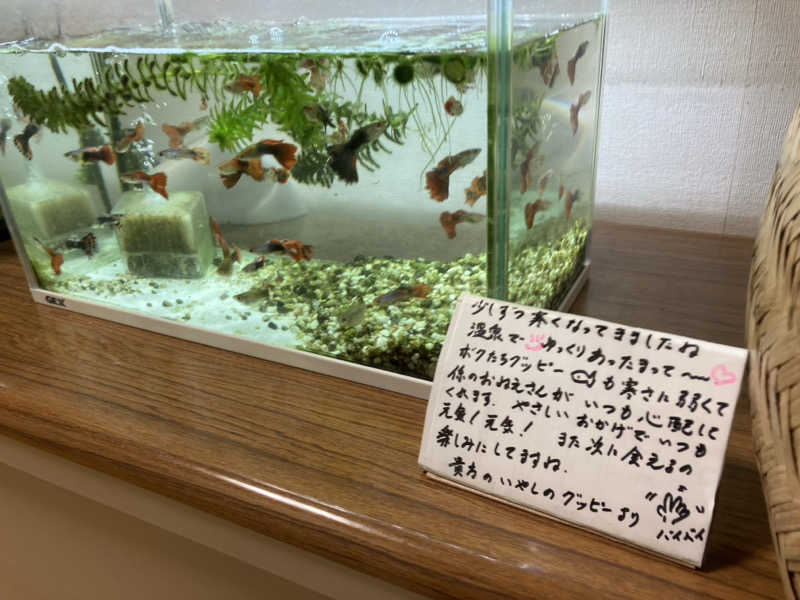 GEX
少しずつ寒くなってきましたね
温泉で♨ゆっくりあったまって〜♡
ボクたちグッピーも寒さに弱くて
係のおねえさんがいつも心配して
くれます。やさしいおかげでいつも
元気!元気! また次に会えるの
楽しみにしてますね.
貴方のいやしのグッピーより
バイバイ